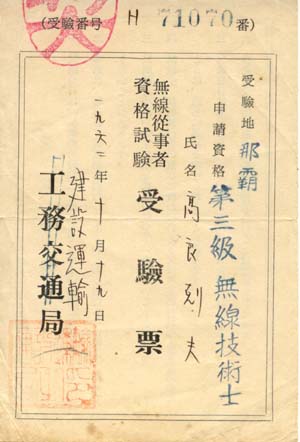 (受驗番号 H 71070 番)
受驗地 那覇
申請資格 第三級無線技術士
氏名 高良剋夫
無線從事者
資格試験
受驗票
一九六二年十月十九日
建設運輸
工務交通局